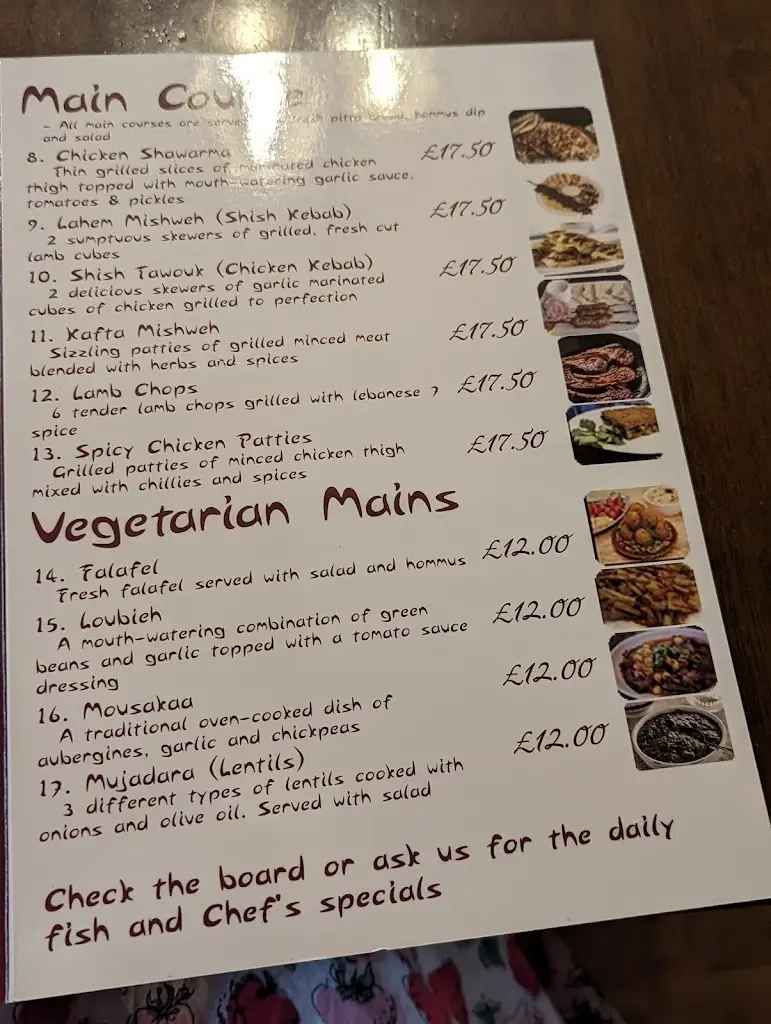 Main Course
- All main courses are served with fresh pitta bread, hommus dip
and salad
8. Chicken Shawarma £17.50
Thin grilled slices of marinated chicken
thigh topped with mouth-watering garlic sauce,
tomatoes & pickles
9. Lahem Mishweh (Shish Kebab) £17.50
2 sumptuous skewers of grilled, fresh cut
lamb cubes
10. Shish Tawouk (Chicken Kebab) £17.50
2 delicious skewers of garlic marinated
cubes of chicken grilled to perfection
11. Kafta Mishweh £17.50
Sizzling patties of grilled minced meat
blended with herbs and spices
12. Lamb Chops £17.50
6 tender lamb chops grilled with lebanese 7
spice
13. Spicy Chicken Patties £17.50
Grilled patties of minced chicken thigh
mixed with chillies and spices
Vegetarian Mains
14. Falafel £12.00
Fresh falafel served with salad and hommus
15. Loubieh £12.00
A mouth-watering combination of green
beans and garlic topped with a tomato sauce
dressing
16. Mousakaa £12.00
A traditional oven-cooked dish of
aubergines, garlic and chickpeas
17. Mujadara (Lentils) £12.00
3 different types of lentils cooked with
onions and olive oil. Served with salad
Check the board or ask us for the daily
fish and Chef's specials